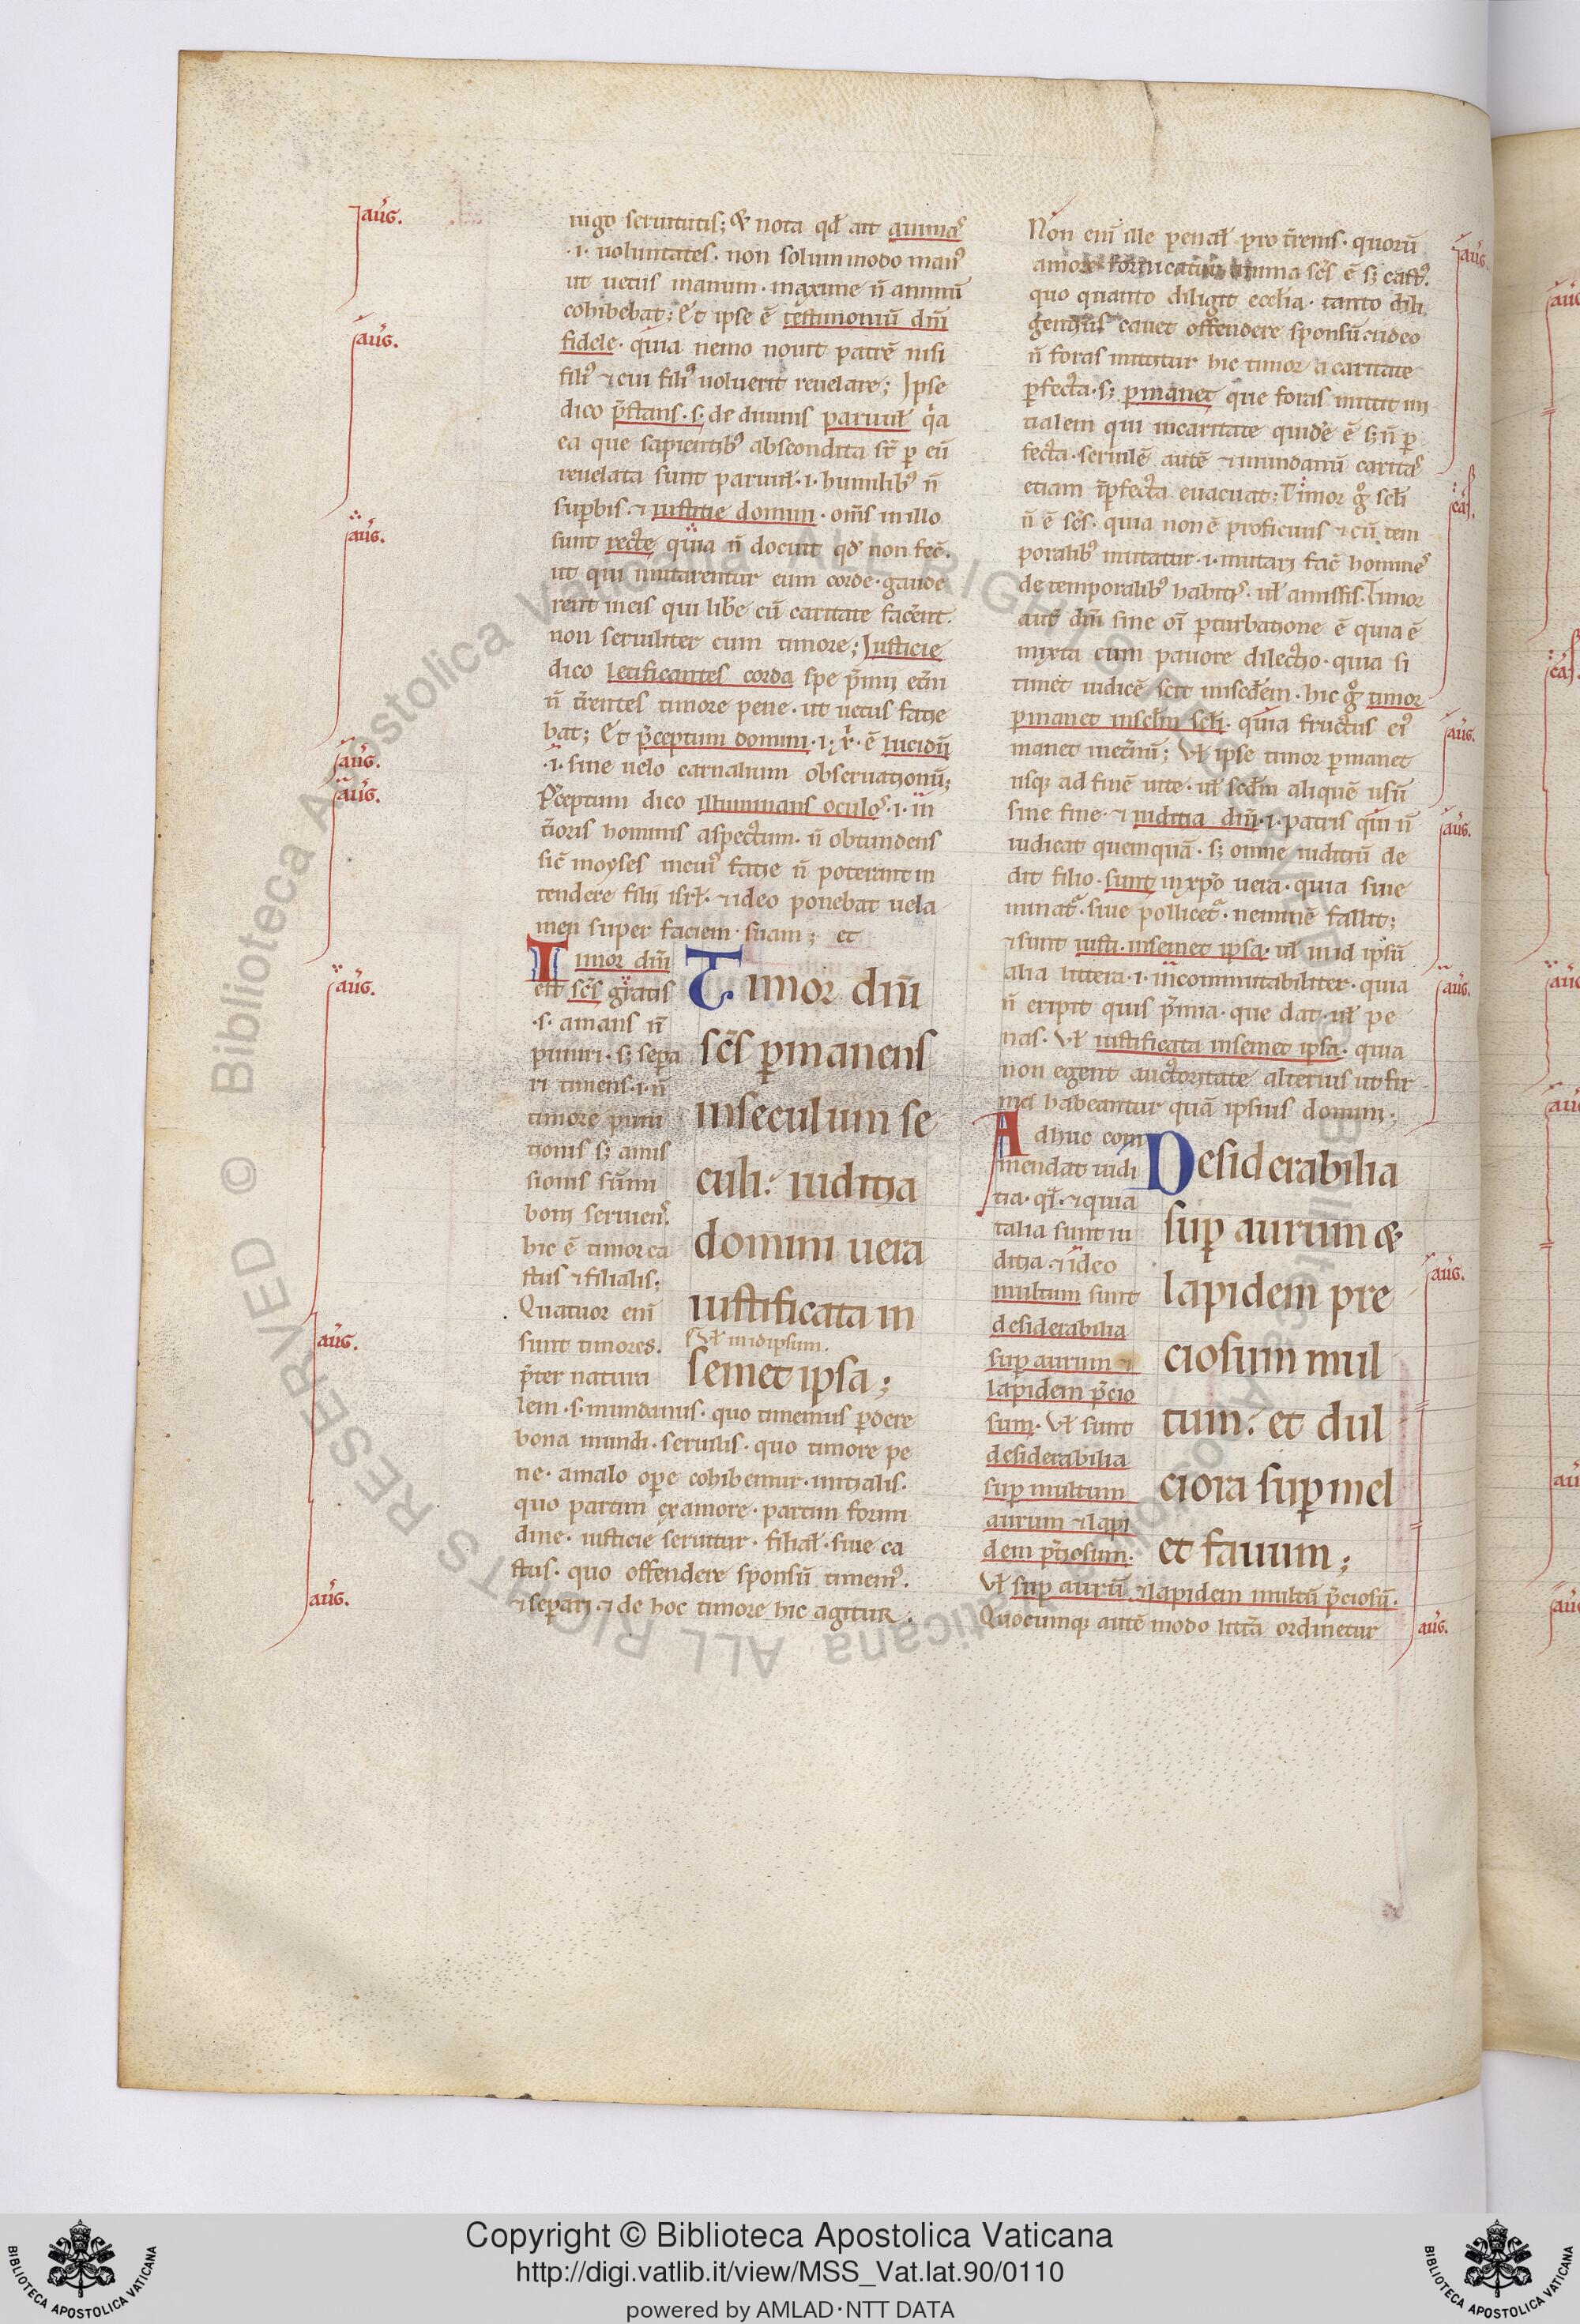 aug̃.
aug̃.
aug̃.
aug̃.
aug̃.
aug̃.
aug̃.
aug̃.
iugo seruitutis; & nota qd̃ ait animas
.i. uoluntates. non solummodo manꝰ
ut uetus manum. maxime ñ animũ
cohibebat; Et ipse ẽ testimoniũ dñi
fidele. quia nemo nouit patrẽ nisi
filiꝰ ⁊ cui filiꝰ uoluerit reuelare; Ipse
dico p̃stans .s. de diuinis paruul̃ q̃a
ea que sapientibꝰ abscondita sr̃ ꝑ eũ
reuelata sunt paruul̃ .i. humilibꝰ ñ
suꝑbis. ⁊ iustitie domini. om̃s in illo
sunt recte quia ñ docuit qd̃ non fec̃.
ut qui imitarentur eum corde. gaude
rent meis qui lib̃e cũ caritate fac̃ent.
non seruiliter cum timore; Iusticie
dico letificantes corda spe p̃mij et̃ni
ñ t̃rentes timore pene. ut uetus facie
bat; Et p̃ceptum domini .i. xp̃i. ẽ lucidũ
.i. sine uelo carnalium obseruationũ;
P̃ceptum dico illuminans oculos .i. in
t̃ioris hominis aspectum. ñ obtundens
sic̃ moyses
facie ñ poterant in
tendere filij isrl̃. ⁊ ideo ponebat uela
men super faciem suam; et
Timor dñi
est sc̃s gratis
.s. amans ñ
puniri. sꝫ sepa
ri timens .i. ñ
timore puni
tionis sꝫ amis
sionis sũmi
boni seruiens.
hic ẽ timor ca
stus ⁊ filialis;
Quatuor eni
sunt timores.
p̃ter natura
lem .s. mundanus. quo timemus ꝑdere
bona mundi. seruilis. quo timore pe
ne. a malo oꝑe cohibemur. initialis.
quo partim ex amore. partim formi
dine. iusticie seruitur. filial̃. siue ca
stus. quo offendere sponsũ timemꝰ.
⁊ seꝑari. ⁊ de hoc timore hic agitur.
Timor dñi
sc̃s ꝑmanens
inseculum se
culi: iuditia
domini uera
iustificata in
Ul̃ in idipsum.
semet ipsa;
Non eni ille penal̃ pro t̃renis. quorũ
amore fornicatur anima sc̃s ẽ sꝫ castꝰ.
quo quanto diligit eccl̃ia. tanto dili
gentius cauet offendere sponsũ. ⁊ ideo
ñ foras mittitur hic timor a caritate
ꝑfecta. sꝫ ꝑmanet que foras mittit ini
tialem qui incaritate quide ẽ sꝫ ñ ꝑ
fecta. seruilẽ autẽ ⁊ mundanũ caritas
etiam ĩꝑfecta euacuat; Timor gͦ scl̃i
ñ ẽ sc̃s. quia non ẽ proficuus ⁊ cũ tem
poralibꝰ mutatur .i. mutari fac̃ homines
de temporalibꝰ habitis. ul̃ amissis. Timor
aut̃ dñi sine oĩ ꝑturbatione ẽ quia ẽ
mixta cum pauore dilectio. quia si
timet iudicẽ scit
hic gͦ timor
ꝑmanet insclm̃ scl̃i. quia fructus eiꝰ
manet inet̃nũ; Ul̃ ipse timor ꝑmanet
usqꝫ ad finẽ uite. ul̃ scd̃m aliquẽ usũ
sine fine. ⁊ iuditia dñi .i. patris qui ñ
iudicat quemquã. sꝫ omne iuditiũ de
dit filio. sunt in xp̃o uera. quia siue
minat̃. siue pollicet̃. neminẽ fallit;
⁊ sunt iusti. insemet ipsa. ul̃ inid ipsũ
alia littera .i. incommutabiliter. quia
ñ eripit quis p̃mia. que dat. ul̃ pe
nas. Ul̃ iustificata insemet ipsa. quia
non egent auctoritate alterius ut fir
ma habeantur quã ipsius domini.
Adhuc com
mendat iudi
tia. ql̃. ⁊ quia
talia sunt iu
ditia. ⁊ ideo
multum sunt
desiderabilia
suꝑ aurum ⁊
lapidem p̃cio
sum. Ul̃ sunt
desiderabilia
suꝑ multum
aurum ⁊ lapi
dem p̃tiosum.
Ul̃ suꝑ aurũ ⁊ lapidem multũ p̃ciosũ.
Quocumqꝫ autẽ modo litt̃a ordinetur
Desiderabilia
suꝑ aurum &
lapidem pre
ciosum mul
tum: et dul
ciora suꝑ mel
et fauum;
aug̃.
cas̃.
aug̃.
aug̃.
aug̃.
aug̃.
aug̃.
© Biblioteca Apostolica Vaticana ALL RIGHTS RESERVED
Copyright © Biblioteca Apostolica Vaticana
http://digi.vatlib.it/view/MSS_Vat.lat.90/0110
powered by AMLAD·NTT DATA
BIBLIOTECA APOSTOLICA VATICANA
BIBLIOTECA APOSTOLICA VATICANA